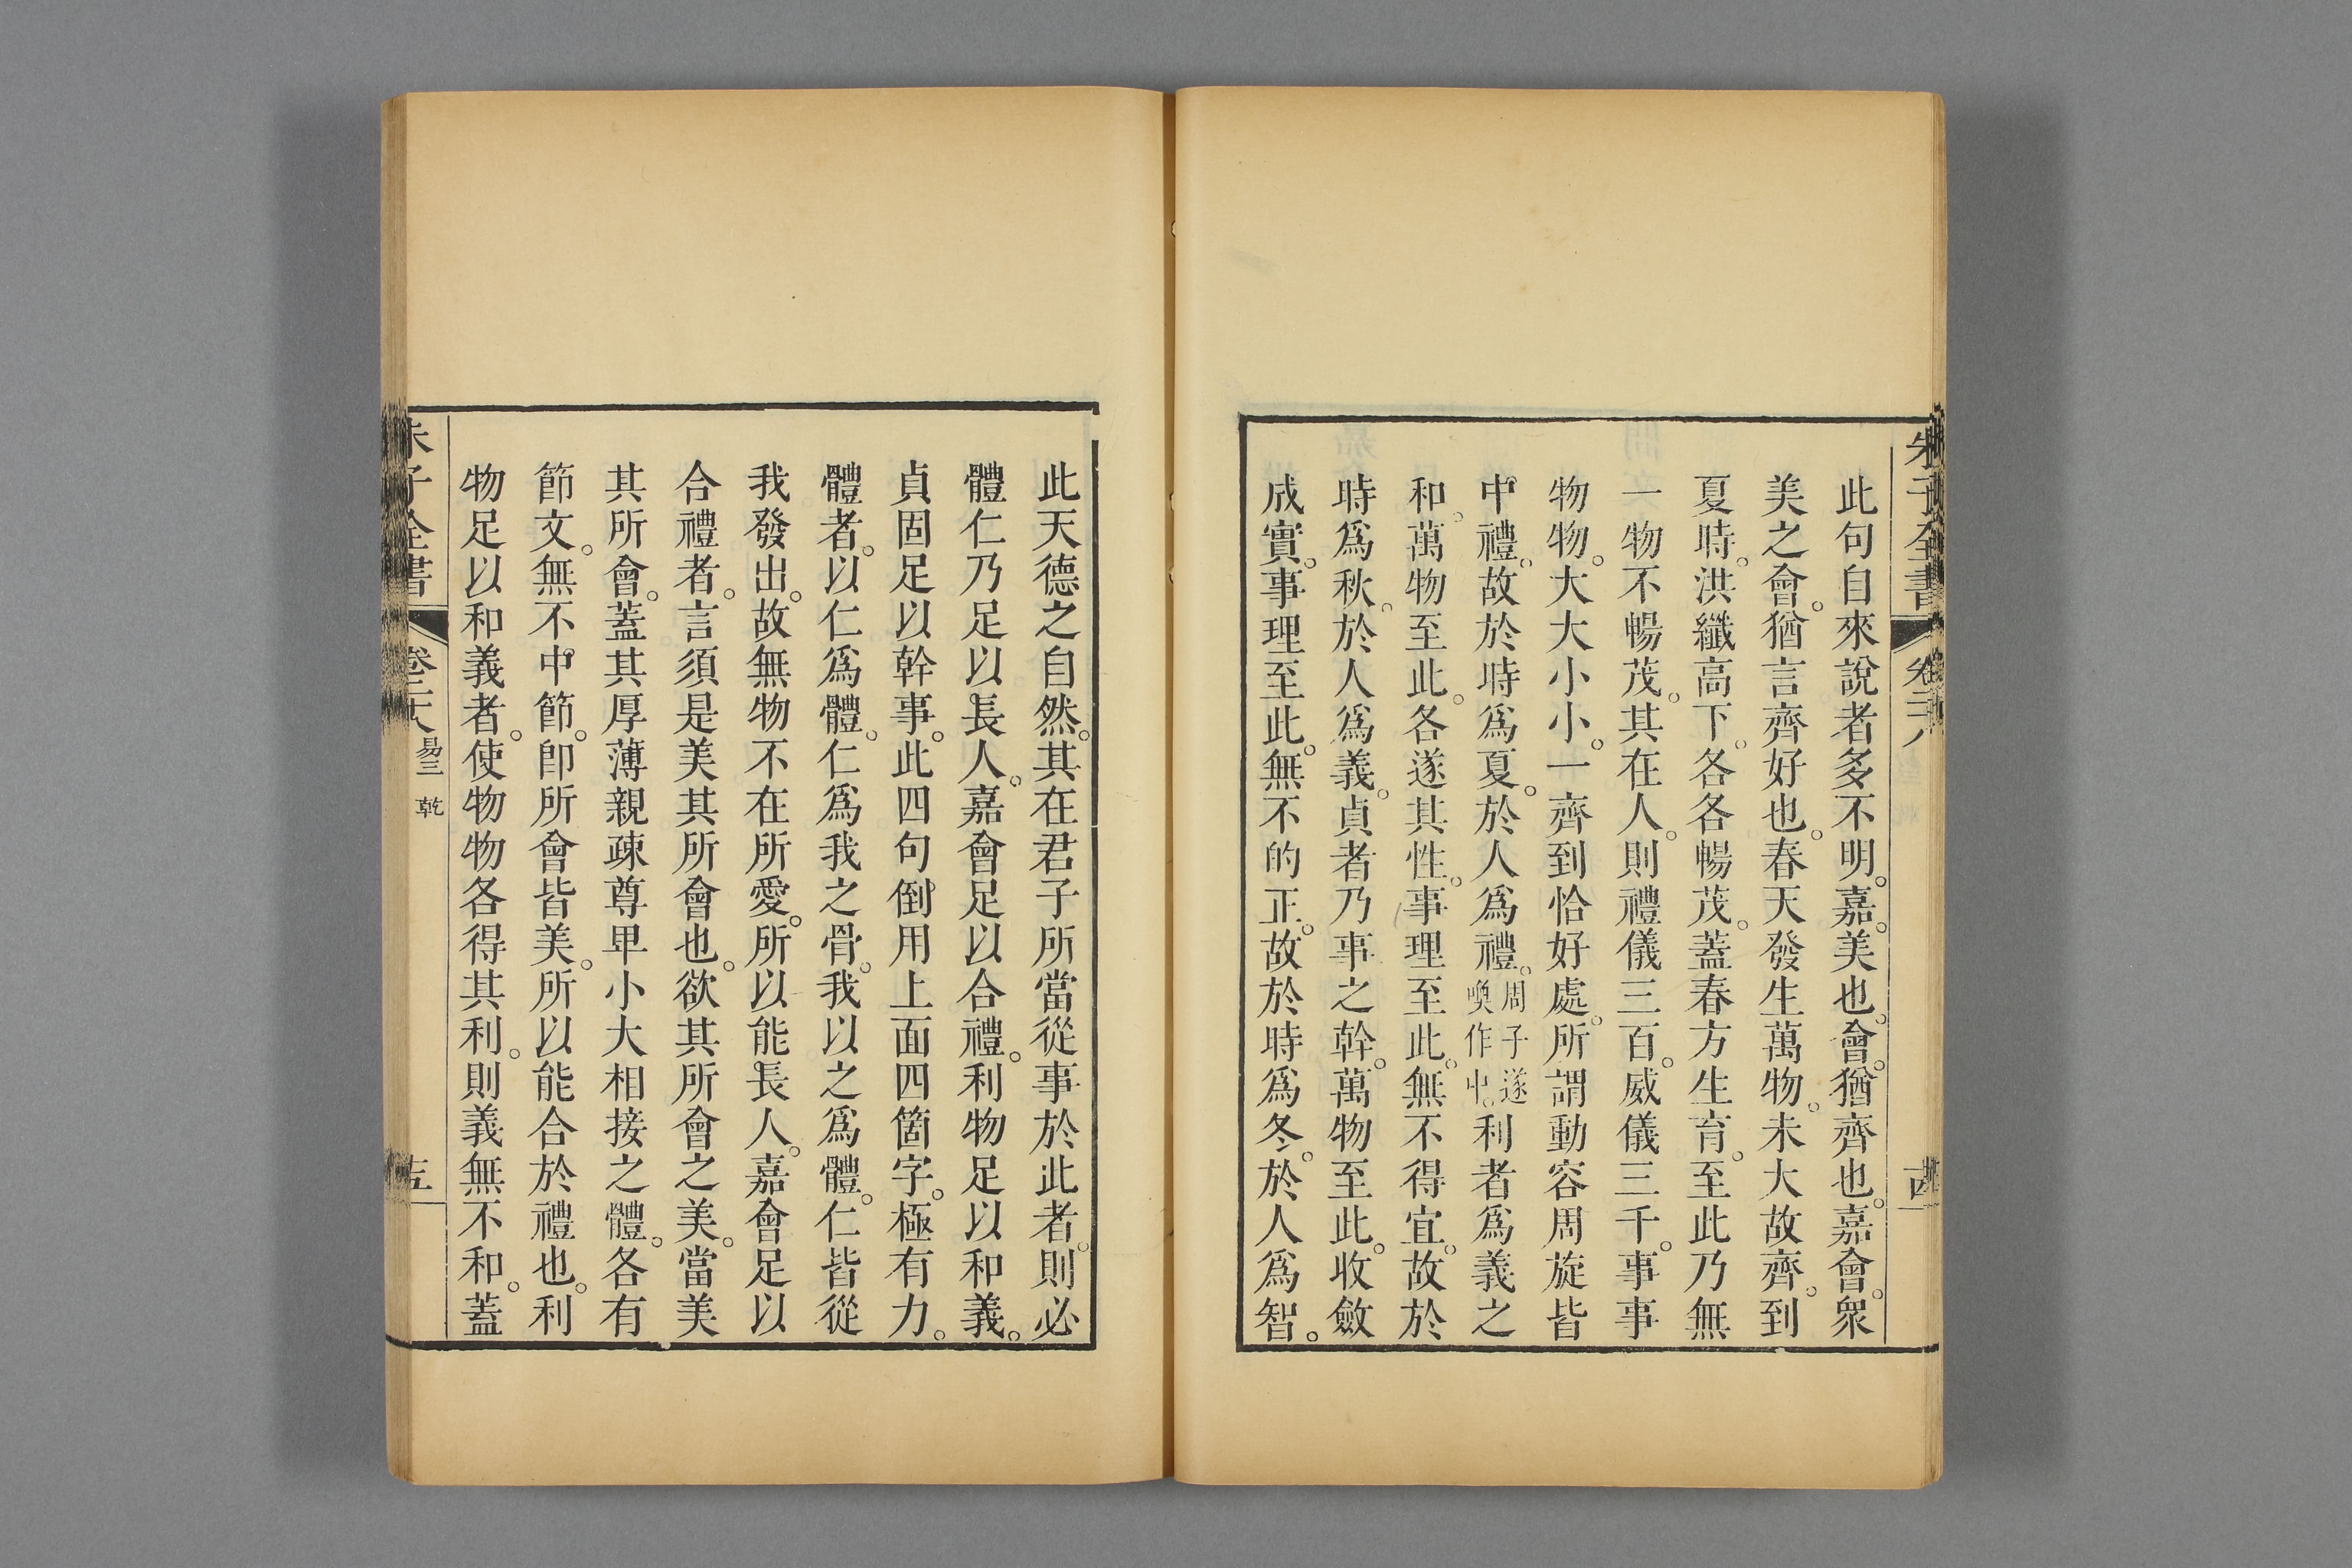 朱子全書 卷二十八 十四
此句自來說者多不明。嘉。美也。會。猶齊也。嘉會。衆
美之會。猶言齊好也。春天發生萬物。未大故齊。到
夏時。洪纖高下。各各暢茂。蓋春方生育。至此乃無
一物不暢茂。其在人。則禮儀三百。威儀三千。事事
物物。大大小小。一齊到恰好處。所謂動容周旋皆
中禮。故於時爲夏。於人爲禮。周子遂喚作中。利者爲義之
和。萬物至此。各遂其性。事理至此。無不得宜。故於
時爲秋。於人爲義。貞者乃事之幹。萬物至此。收斂
成實。事理至此。無不的正。故於時爲冬。於人爲智。
此天德之自然。其在君子所當從事於此者。則必
體仁乃足以長人。嘉會足以合禮。利物足以和義。
貞固足以幹事。此四句倒用上面四箇字。極有力。
體者。以仁爲體。仁爲我之骨。我以之爲體。仁皆從
我發出。故無物不在所愛。所以能長人。嘉會足以
合禮者。言須是美其所會也。欲其所會之美。當美
其所會。蓋其厚薄親疎尊卑小大相接之體。各有
節文。無不中節。卽所會皆美。所以能合於禮也。利
物足以和義者。使物物各得其利。則義無不和。蓋
朱子全書 卷二十八 易三 乾 十五